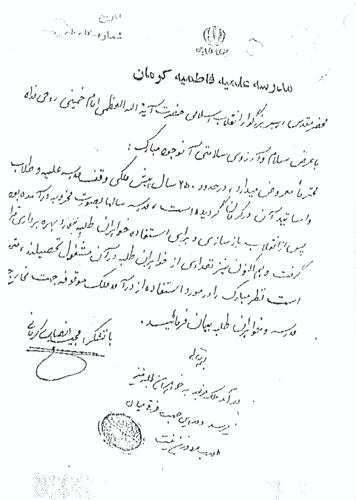 تاریخ
شماره
مدرسه علمیه فاطمیه کرمان
محضر مقدس رهبر بزرگوار انقلاب اسلامی حضرت آیة الله العظمی امام خمینی روحی فداه
با عرض سلام و آرزوی سلامتی آنوجود مبارک:
محترماً معروض میدارد، در حدود ۲۵۰ سال پیش ملکی وقف مدرسه علمیه و طلاب
و اساتید آن در کرمان گردیده است، مدرسه سالها بصورت مخروبه درآمده بود
پس از انقلاب بازسازی و برای استفاده خواهران طلبه مورد بهره برداری قرار
گرفت و هم اکنون نیز تعدادی از خواهران طلبه در آن مشغول تحصیلند،
است نظر مبارک را در مورد استفاده از درآمد ملک موقوفه جهت مخارج
مدرسه و خواهران طلبه بیان فرمائید.
با تشکر
بسمه تعالی
درآمد ملک مزبور به خواهران طلبه نیز